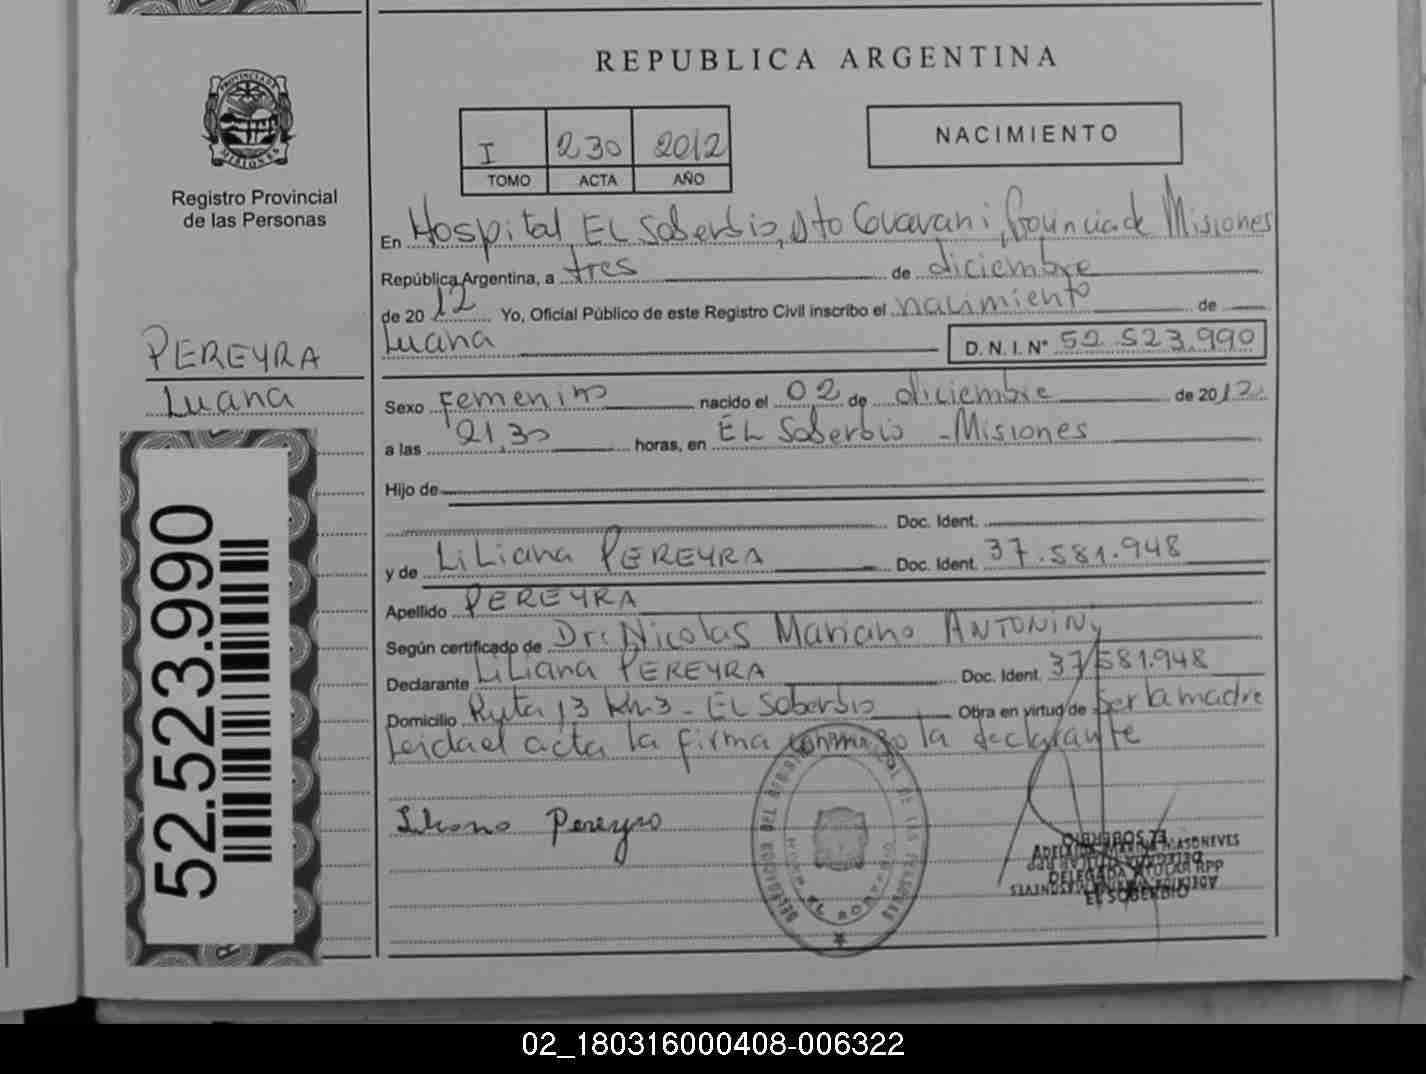 REPUBLICA ARGENTINA
PROVINCIA DE
MISIONES
Registro Provincial
de las Personas
I 230 2012
TOMO ACTA AÑO
NACIMIENTO
En Hospital, EL Soberbio, Dto Guarani, Provincia de Misiones
República Argentina, a tres de diciembre
de 2012 Yo, Oficial Público de este Registro Civil inscribo el nacimiento de
Luana D.N.I. N° 52.523.990
PEREYRA
Luana
Sexo Femenino nacido el 02 de diciembre de 2012
a las 21,30 horas, en EL Soberbio - Misiones
Hijo de
Doc. Ident.
y de LiLiana PEREYRA Doc. Ident. 37.581.948
Apellido PEREYRA
Según certificado de Dr: Nicolas Mariano ANTONINY
Declarante LiLiana PEREYRA Doc. Ident. 37.581.948
Domicilio Ruta 13 Km3 - EL Soberbio Obra en virtud de Ser la madre
Leida el acta la firma conmigo la declarante
52.523.990
Liliana Pereyra
DELEGADA TITULAR RPP
EL SOBERBIO
02_180316000408-006322